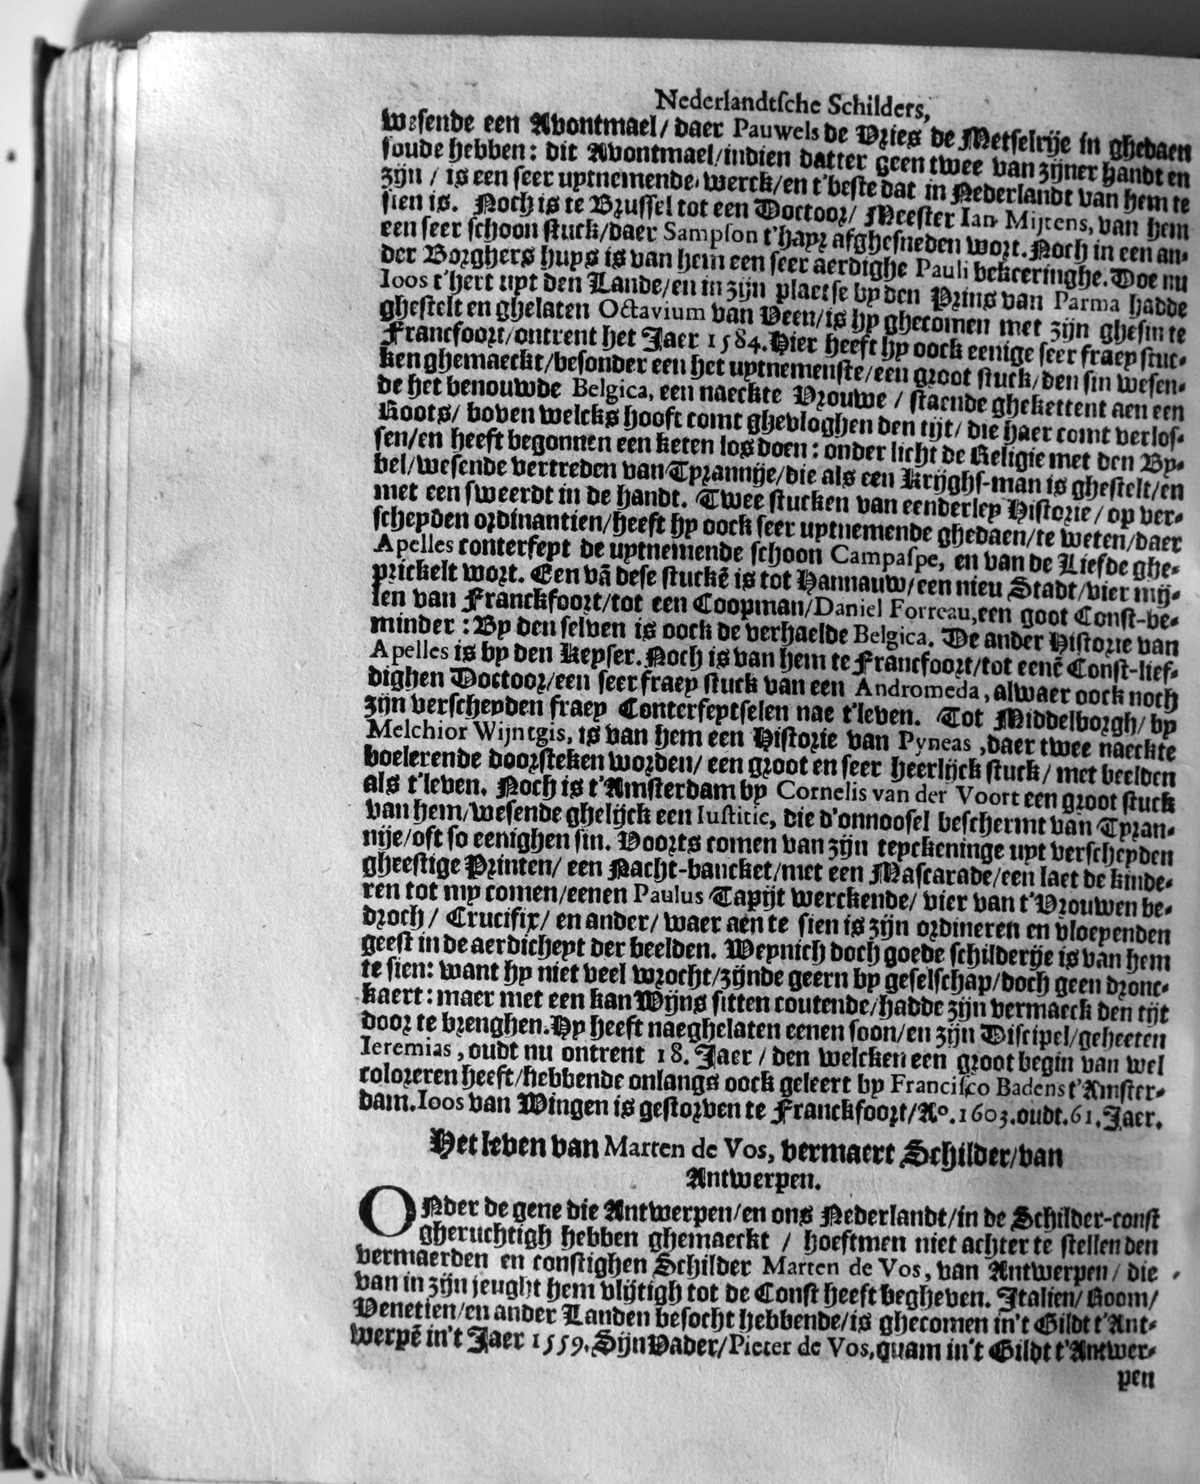 Nederlandtsche Schilders,
wesende een Avontmael/ daer Pauwels de Vries de Metselrije in ghedaen
soude hebben: dit Avontmael/indien datter geen twee van zijner handt en
zijn / is een seer uytnemende werck/en t'beste dat in Nederlandt van hem te
sien is. Noch is te Brussel tot een Doctoor/ Meester Ian Mijtens, van hem
een seer schoon stuck/daer Sampson t'hayr afghesneden wort. Noch in een an-
der Borghers huys is van hem een seer aerdighe Pauli bekeeringhe. Doe nu
Ioos t'hert uyt den Lande/en in zijn plaetse by den Prins van Parma hadde
ghestelt en ghelaten Octavium van Veen/is hy ghecomen met zijn ghesin te
Francfoort/ontrent het Jaer 1584. Hier heeft hy oock eenige seer fraey stuc-
ken ghemaeckt/besonder een het uytnemenste/een groot stuck/den sin wesen-
de het benouwde Belgica, een naeckte Vrouwe / staende ghekettent aen een
Roots/ boven welcks hooft comt ghevloghen den tijt/ die haer comt verlos-
sen/en heeft begonnen een keten los doen: onder licht de Religie met den By-
bel/wesende vertreden van Tyrannije/die als een Krijghs-man is ghestelt/en
met een sweerdt in de handt. Twee stucken van eenderley Historie/ op ver-
scheyden ordinantien/heeft hy oock seer uytnemende ghedaen/te weten/daer
Apelles conterfeyt de uytnemende schoon Campaspe, en van de Liefde ghe-
prickelt wort. Een vā dese stuckē is tot Hannauw/een nieu Stadt/vier mij-
len van Franckfoort/tot een Coopman/Daniel Forreau,een goot Const-be-
minder : By den selven is oock de verhaelde Belgica. De ander Historie van
Apelles is by den Keyser. Noch is van hem te Francfoort/tot eenē Const-lief-
dighen Doctoor/een seer fraey stuck van een Andromeda, alwaer oock noch
zijn verscheyden fraey Conterfeytselen nae t'leven. Tot Middelborgh/ by
Melchior Wijntgis, is van hem een Historie van Pyneas ,daer twee naeckte
boelerende doorsteken worden/ een groot en seer heerlijck stuck/ met beelden
als t'leven. Noch is t'Amsterdam by Cornelis van der Voort een groot stuck
van hem/wesende ghelijck een Iustitie, die d'onnoosel beschermt van Tyran-
nije/oft so eenighen sin. Voorts comen van zijn teyckeninge uyt verscheyden
gheestige Printen/ een Nacht-bancket/met een Mascarade/een laet de kinde-
ren tot my comen/eenen Paulus Tapijt werckende/ vier van t'Vrouwen be-
droch/ Crucifix/ en ander/ waer aen te sien is zijn ordineren en vloeyenden
geest in de aerdicheyt der beelden. Weynich doch goede schilderije is van hem
te sien: want hy niet veel wrocht/zijnde geern by geselschap/doch geen dronc-
kaert: maer met een kan Wijns sitten coutende/hadde zijn vermaeck den tijt
door te brenghen. Hy heeft naeghelaten eenen soon/en zijn Discipel/geheeten
Ieremias , oudt nu ontrent 18. Jaer / den welcken een groot begin van wel
coloreren heeft/hebbende onlangs oock geleert by Francisco Badens t'Amster-
dam. Ioos van Wingen is gestorven te Franckfoort/Aº. 1603. oudt. 61. Jaer.
Het leven van Marten de Vos, vermaert Schilder/van
Antwerpen.
ONder de gene die Antwerpen/en ons Nederlandt/in de Schilder-const
gheruchtigh hebben ghemaeckt / hoeftmen niet achter te stellen den
vermaerden en constighen Schilder Marten de Vos, van Antwerpen/ die
van in zijn jeught hem vlijtigh tot de Const heeft begheven. Italien/ Room/
Venetien/en ander Landen besocht hebbende/is ghecomen in't Gildt t'Ant-
werpē in't Jaer 1559. Sijn Vader/Pieter de Vos,quam in't Gildt t'Antwer-
pen